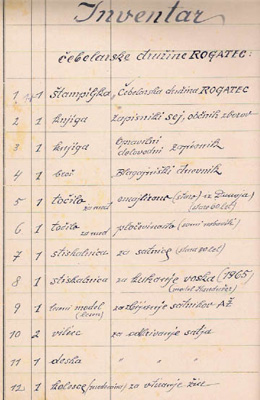 Inventar
čebelarske družine ROGATEC:
1 1 Štampiljka Čebelarska družina ROGATEC
2 1 knjiga zapisniki sej, občnih zborov
3 1 knjiga Opravilni delovodni zapisnik
4 1 Blagajniški dnevnik
5 1 točilo za med (staro) iz Dunaja) (staro 80 let)
6 1 točilo za med pločevinasto
7 1 stiskalnica za satnice (stara 80 let)
8 1 stiskalnica za kuhanje voska (1965)
9 1 model za zbijanje satnikov AŽ
10 2 vilice za odkrivanje satja
11 1 deska " " "
12 1 kolesce za vtiranje žic